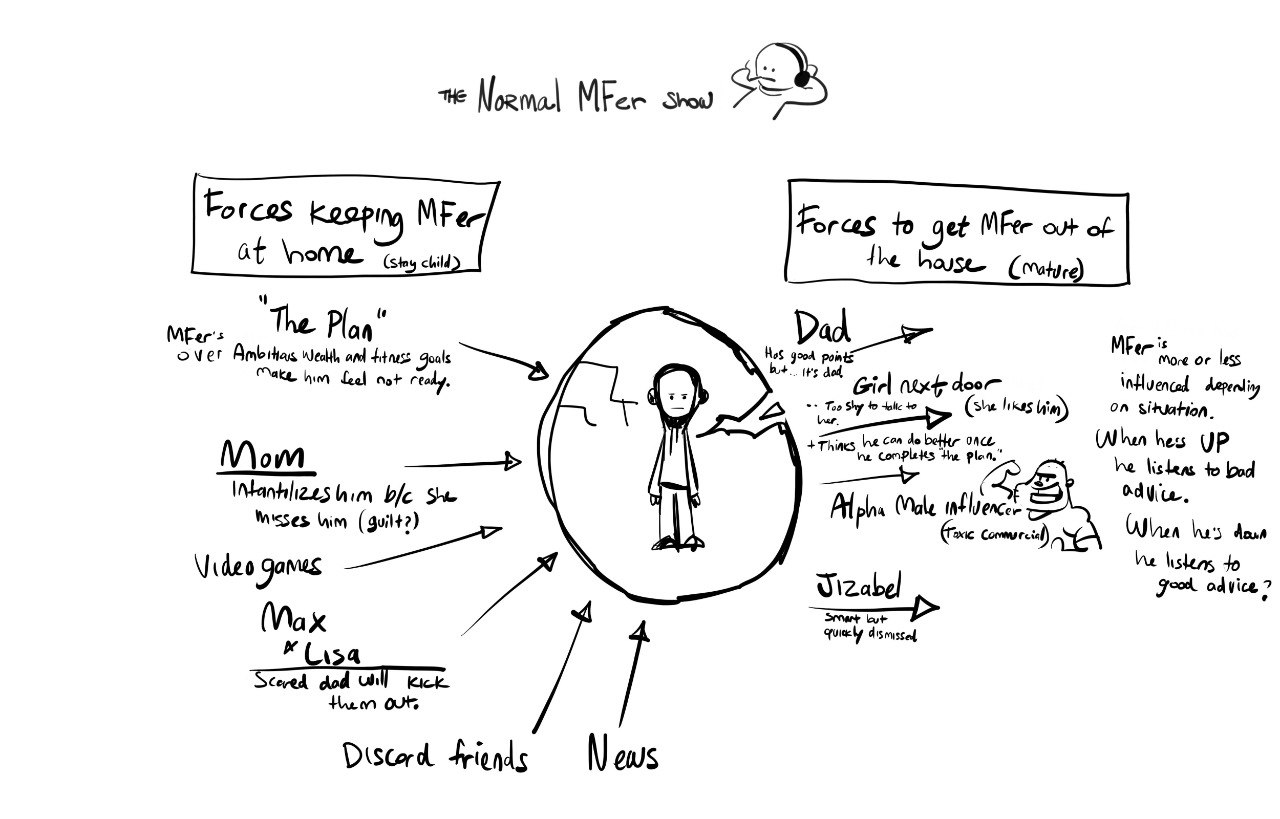 THE NORMAL MFer SHOW
Forces keeping MFer
at home (stay child)
"The Plan"
MFer's
over Ambitious wealth and fitness goals
make him feel not ready.
Mom
Infantilizes him b/c she
misses him (guilt?)
Video games
Max
& Lisa
Scared dad will kick
them out.
Discord friends
News
Forces to get MFer out of
the house (mature)
Dad
Has good points
but... it's dad
Girl next door
(she likes him)
-- Too shy to talk to
her.
+ Thinks he can do better once
he completes "the plan."
Alpha Male influencer
(Toxic commercial)
Jizabel
Smart but
quickly dismissed
MFer is
more or less
influenced depending
on situation.
When hes UP
he listens to bad
advice.
When he's down
he listens to
good advice?